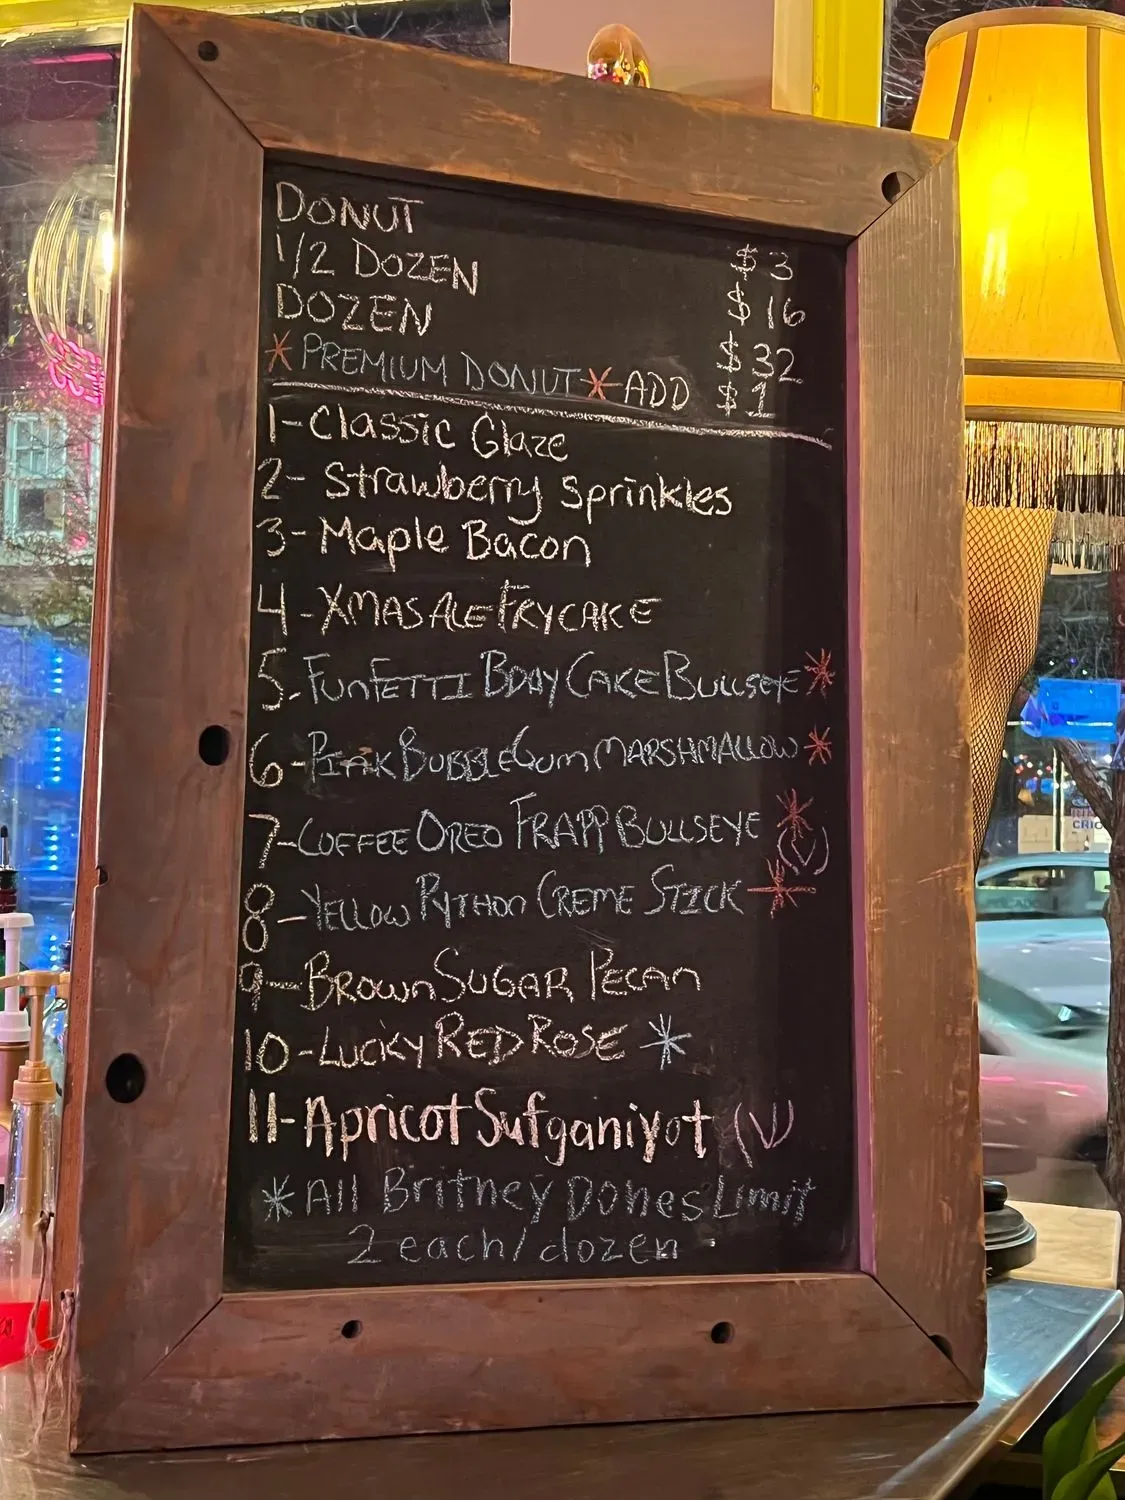 DONUT $3
1/2 DOZEN $16
DOZEN $32
*PREMIUM DONUT* ADD $1
1-Classic Glaze
2- Strawberry Sprinkles
3- Maple Bacon
4-XMAS ALE FRYCAKE
5-FUNFETTI BDAY CAKE BULLSEYE*
6-PINK BUBBLEGUM MARSHMALLOW*
7-COFFEE OREO FRAPP BULLSEYE* (V)
8-YELLOW PYTHON CREME STICK*
9-BROWN SUGAR PECAN
10-LUCKY RED ROSE *
11-Apricot Sufganiyot (V)
*All Britney Dones Limit
2 each/dozen